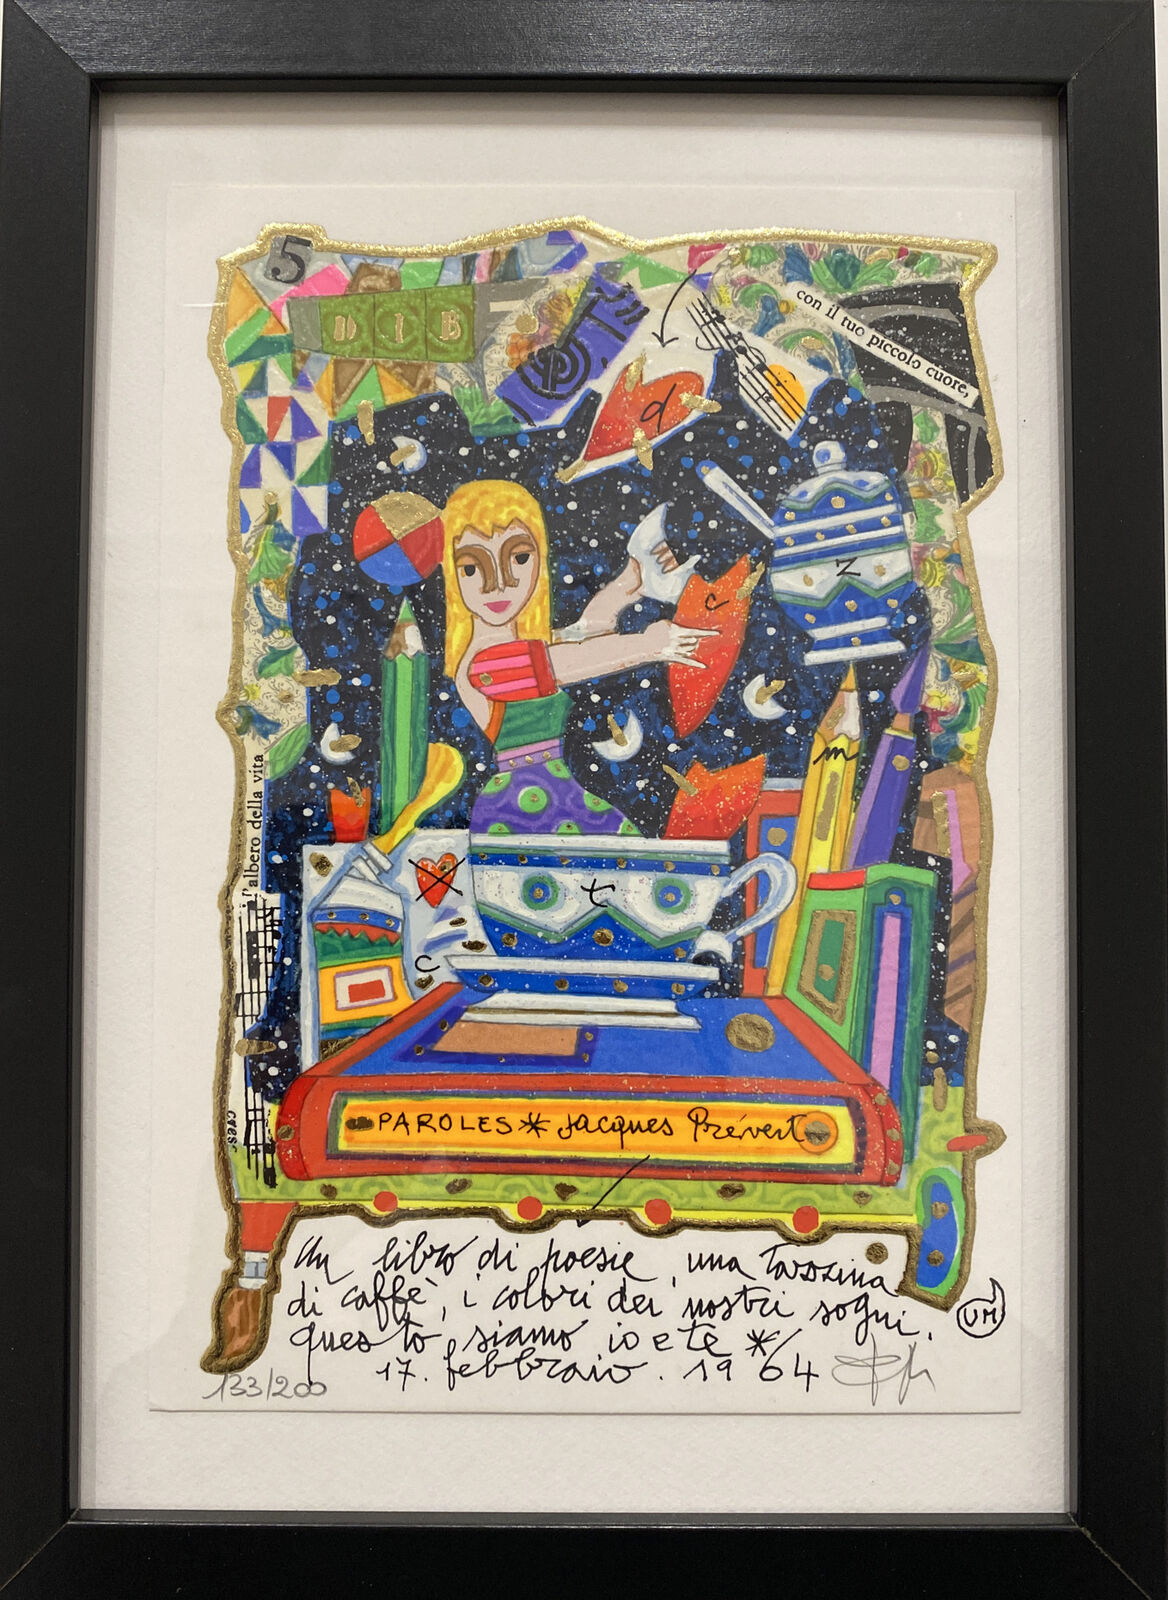 5
DIB
con il tuo piccolo cuore,
d
z
c
m
l'albero della vita
t
c
PAROLES * Jacques Prévert
Un libro di poesie, una Tazzina
di caffè, i colori dei nostri sogni.
questo siamo io e te *
17. febbraio. 1964
UM
133/200